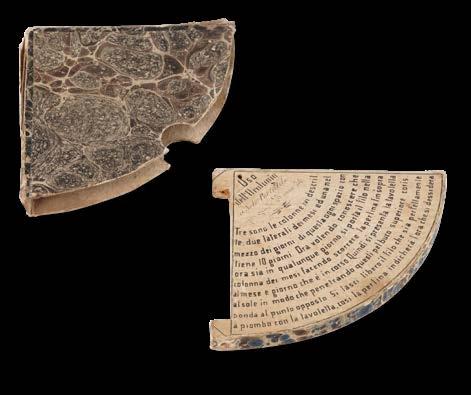 Uso
dell'Orologio
Tre sono le colonne ivi descrit
te, due laterali dei mesi ed una nel
mezzo dei giorni di questa ogni spazio con
tiene 10 giorni. Ora volendo conoscere che
ora sia in qualunque giorno si porta il filo nella
colonna dei mesi facendo scorrere la perlina in sopra
al mese e giorno che è in corso. Quindi si presenta la tavolella
al sole in modo che penetrando questi pel buco superiore corris
ponda al punto opposto. Si lasci libero il filo che sia perfettamente
a piombo con la tavolella, così la perlina indicherà l'ora che si desidera